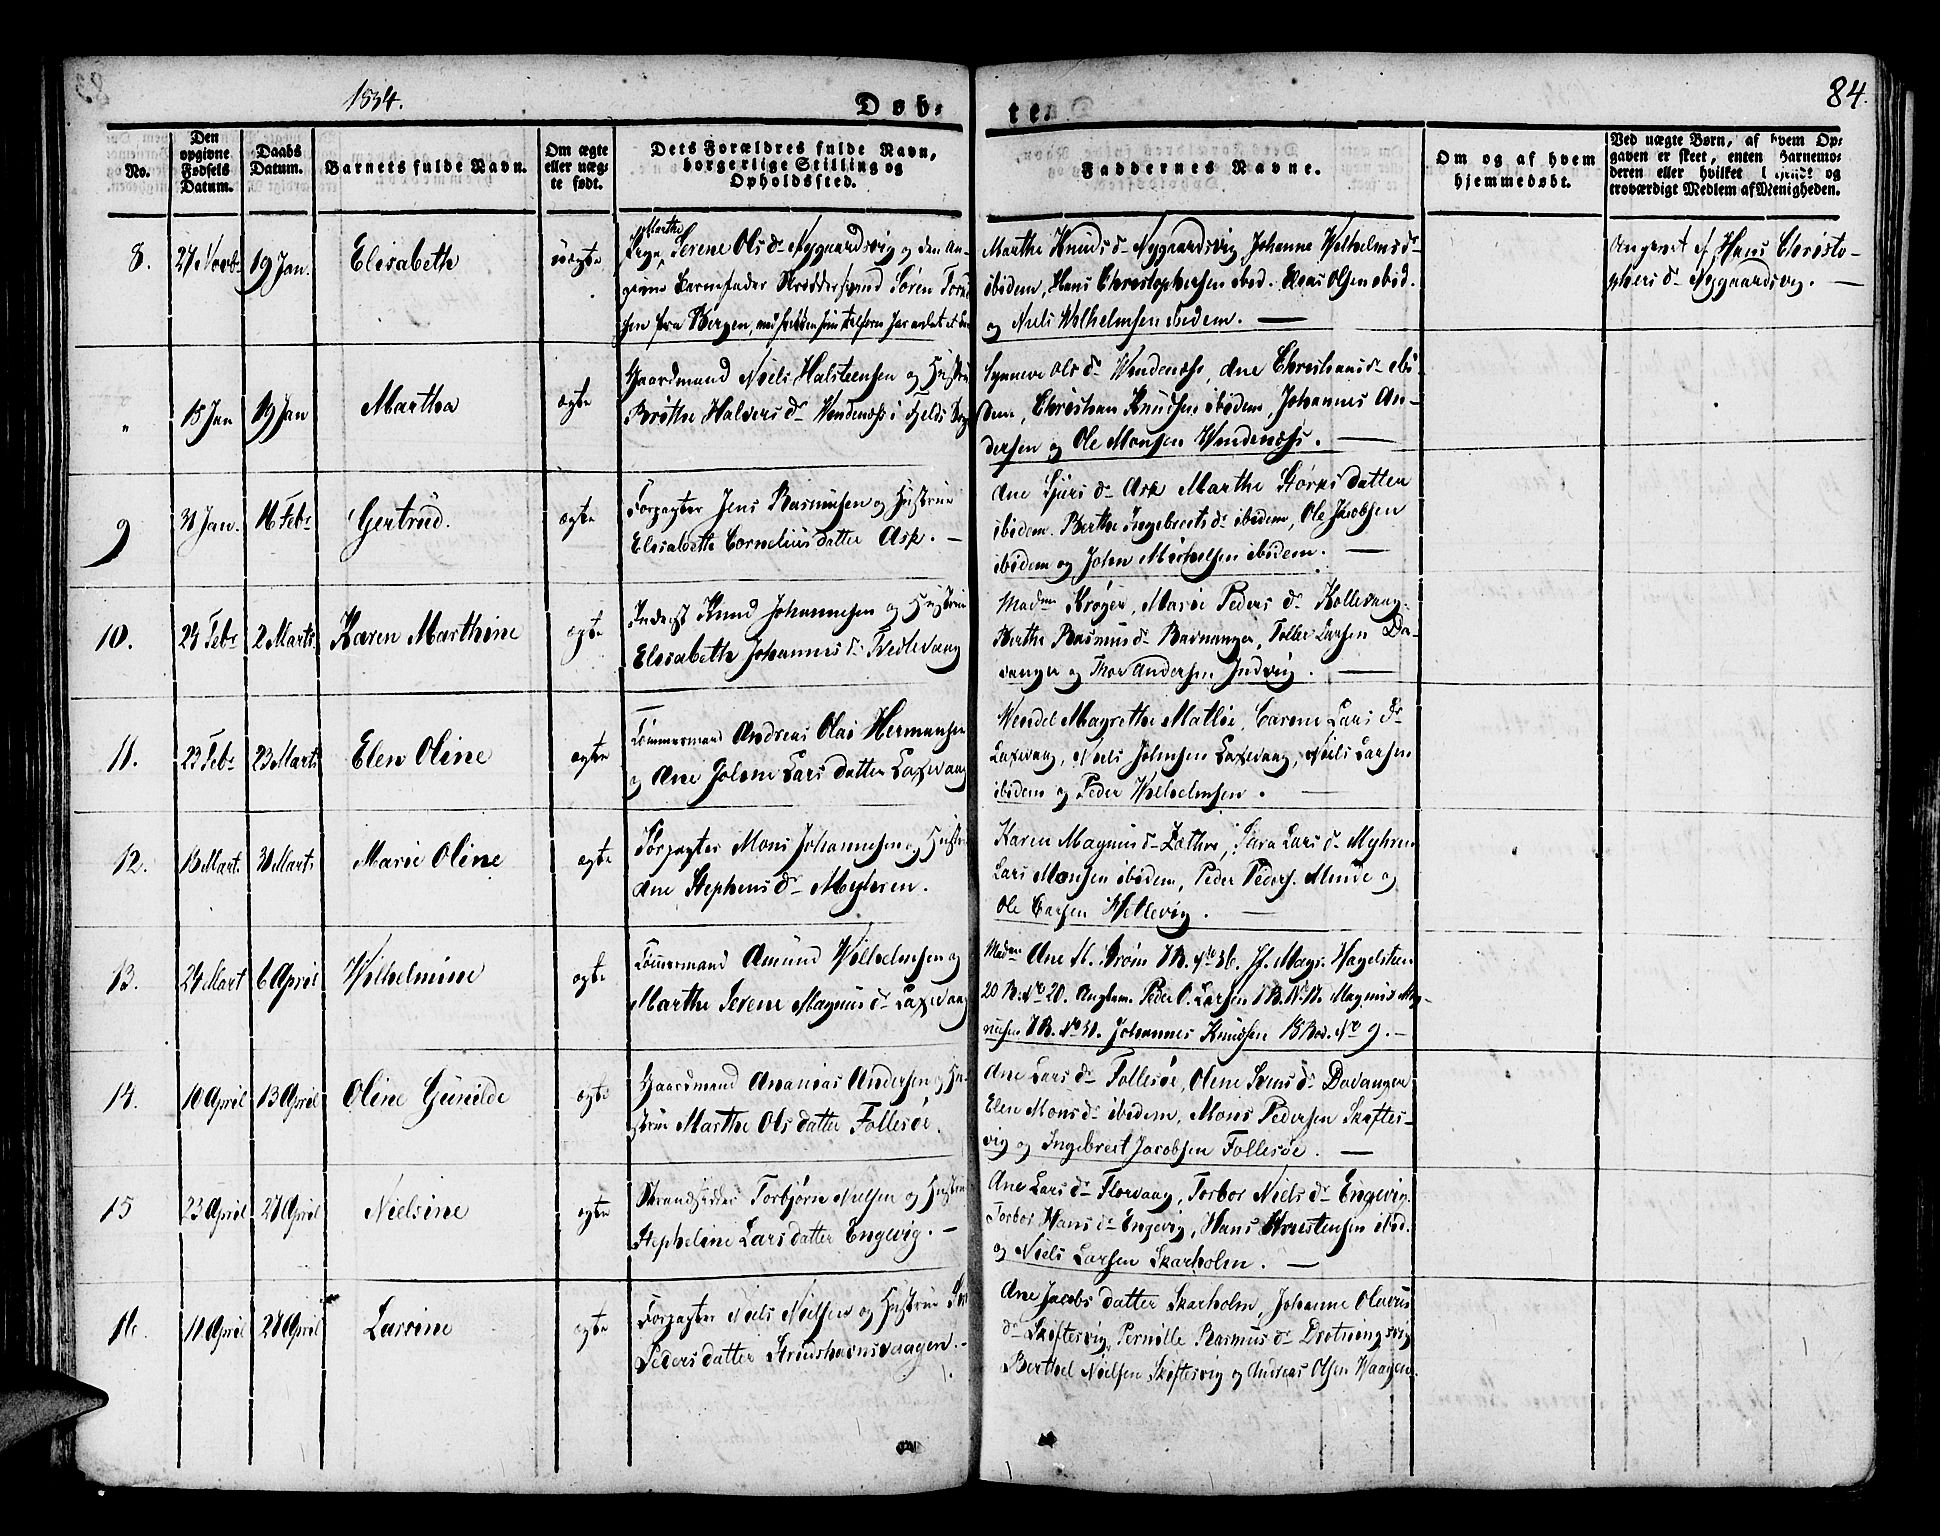 1834.
Døb-
te.
84.
No.
Den opgivne Fødsels Datum.
Daabs Datum.
Barnets fulde Navn.
Om ægte eller uægte født.
Dets Forældres fulde Navn, borgerlige Stilling og Opholdssted.
Faddernes Navne.
Om og af hvem hjemmedøbt.
Ved uægte Børn, af hvem Op-
gaven er skeet, enten Barnemo-
deren eller hvilket
troværdigt Medlem af Menigheden.
8.
27 Novbr
19 Jan.
Elisabeth
uægte
Marthe
Pige, Serene Ols Dr Nygaardsvig og den an-
givne Barnefader Skrædder Søren
fra Bergen,
Marthe Knuds Dr Nygaardsvig Johanne Wilhelms dr
ibidem, Hans Christophersen ibid. Elias Olsen ibid.
og Niels Wilhelmsen ibidem. —
Angivet af Hans Christo-
phers Dr Nygaardsvig. —
"
15 Jan
19 Jan
Martha
ægte
Gaardmand Niels Halsteensen og Hustru
Brithe Halvors Dr Vindenæss i Fjelds
Synneve Ols Dr Vindenæss, Ane Christians Dr ibi-
dem, Christian Knudsen ibidem, Johannes An-
dersen og Ole Monsen Vindenæss. —
9
31 Jan.
16 Febr
Gertrud.
ægte
Forpagter Jens Rasmussen og Hustrue
Elisabeth Cornelius datter Ask. —
Ane Sjurs Dr Ask Marthe Størks datter
ibidem. Berthe Ingebreets Dr ibidem, Ole Jacobsen
ibidem og John Michelsen ibidem. —
10.
24 Febr
2 Marts
Karen Marthine
ægte
Inderst Knud Johannesen og Hustrue
Elisabeth Johannes Dr Tvedtevaag
Madme Krøger, Marie Peders Dr Kollevaag.
Berthe Rasmus Dr Ravnanger, Toller Larsen Da-
vanger og Thor Andersen Indvig. —
11.
22 Febr
23 Marts
Elen Oline
ægte
Tømmermand Andreas Olai Hermansen
og Ane Lars datter Laxevaag
Wendel Magrethe Matløe, Carine Lars Dr
Laxevaag, Niels Johnsen Laxevaag, Niels Larsen
ibidem og Peder Wilhelmsen.
12.
13 Mart.
31 Marts
Marie Oline
ægte
Forpagter Mons Johannesen og Hustru
Ane Stephens Dr Myhren.
Karen Magnus Dr Sara Lars Dr Myhren
Lars Monsen ibidem, Peder Peders. Minde og
Ole Larsen —
13.
24 Mart
6 April
Wilhelmine
ægte
Tømmermand Amund Wilhelmsen og
Marthe Serene Magnus Dr Laxevaag
Madme Ane M. Strøm 7 R. No 36. Jf. Magr. Hagelsteen
20 R. No 20. Peder O. Larsen Magnus Mag-
nusen 7 R. No 31. Johannes Knudsen 18 Rod. No 9. —
14.
10 April
13 April
Oline Gunilde
ægte
Gaardmand Ananias Andersen og Hu-
strue Marthe Ols datter Follesøe.
Ane Lars Dr Follesøe, Olene Svens Dr Davanger
Elen Mons Dr ibidem, Mons Pedersen Skiftes-
vig og Ingebreet Jacobsen Follesøe. —
15
23 April
27 April
Nielsine
ægte
Strandsidder Torbjørn Nielsen og Hustru
Stepheline Lars datter Engevig. —
Ane Lars Dr Florvaag, Torbor Niels Dr Engevig.
Torbor Hans Dr Engevig, Hans Christensen ibid.
og Niels Larsen Skarholm. —
16.
11 April
27 April
Larine
ægte
Forpagter Niels Nielsen og Hustrue
Peders datter Struishavnsvaagen. —
Ane Jacobs datter Skarholm, Johanne Olavus
Dr Skiftesvig, Pernille Rasmus Dr Drotningsvig
Berthel Nielsen Skiftesvig og Andreas Olsen Waagen.